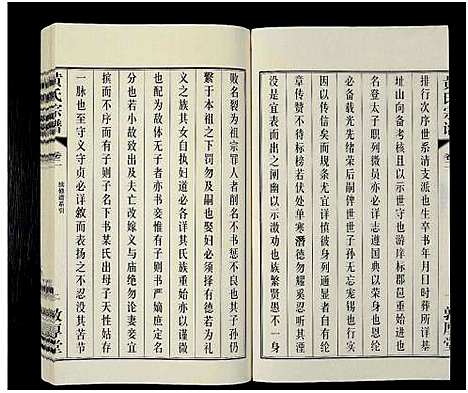 排行次序世系清支派也生卒书年月日时葬所详
址山向备考核也士农工商终世守也游庠标郡邑重始进也
名登太子职列微员亦必详志遵国典以荣身也恩纶
必备载光先绪荣后嗣俾世世子孙无忘宠锡
因以传信宜详慎幽可显微身列通显者自有传
章传赞不待标榜若伏处单寒潜德幼耀奚忍听其湮
没是宜表而出之阐幽以示激劝也族繁贤愚不一身
败名裂为祖宗罪人者削名不书惩不肖也犹记其子孙仍
系于祖者罚勿及嗣也娶妇必择有德若为礼
义之族其女自执妇道必各详其氏族重始亦以谨微
也配为敌体无子者亦书妾惟有子则书严嫡庶定名
分也若小故致出及夫亡改嫁义与庙绝勿论妻妾宜
摈而不书或有子则子名下书某氏出母子天性姑存
一脉也至守义守贞必详叙而表扬之不忍没其苦节
黄氏宗谱
卷一
续修谱系引
敦厚堂